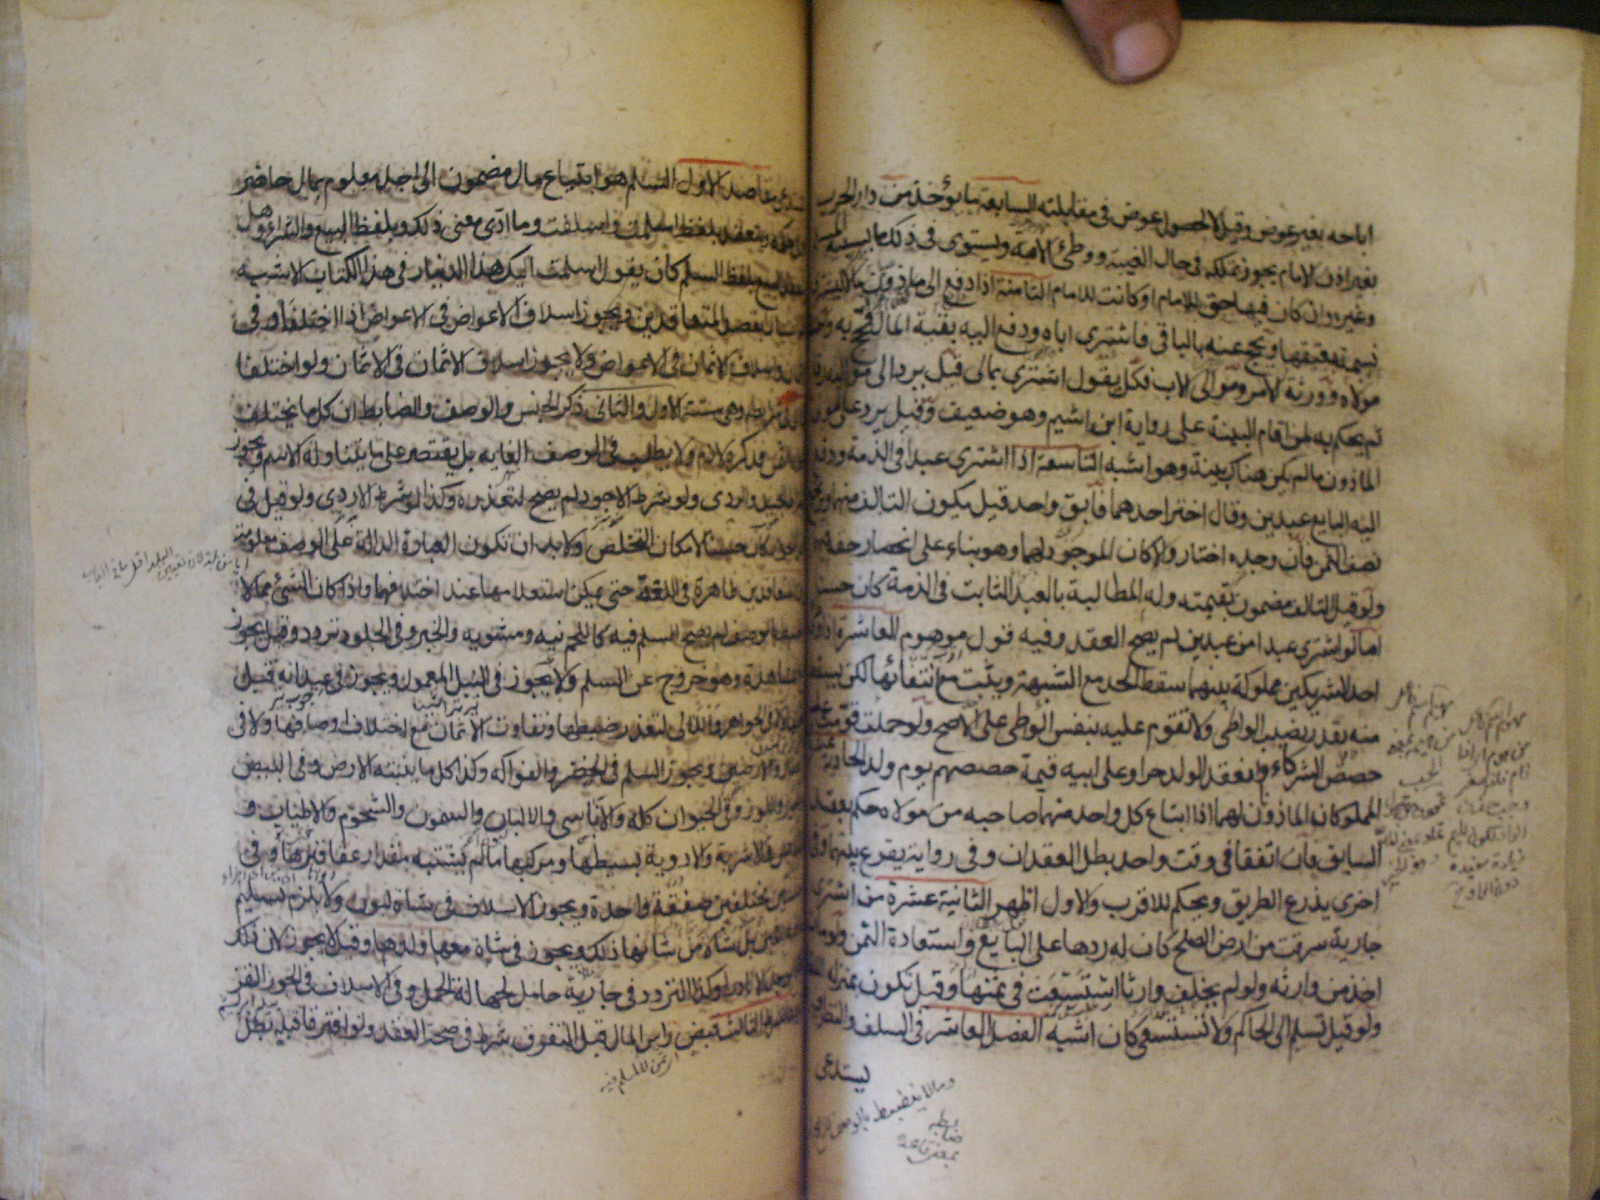 اباحه بغير عوض وقيل لا لحصول عوض في مقابلته السابعة ما يؤخذ من دار الحرب
بغير اذن الامام يجوز تملكه في حال الغيبة ووطئ الامة ويستوى في ذلك ما يسبيه المسلم
وغيره وان كان فيها حق للامام او كانت للامام الثامنة اذا دفع الى ماذون مالا ليشترى
نسمة ويعتقها ويحج عنه بالباقي فاشترى اباه ودفع اليه بقية المال فحج به
مولاه وورثة الامر ومولى الاب فكل يقول اشترى بمالى قيل يرد الى مولاه رقا
ثم يحكم به لمن اقام البينة على رواية ابن اشيم وهو ضعيف وقيل يرد على مولى
الماذون مالم يكن هناك بينة وهو اشبه التاسعة اذا اشترى عبدا في الذمة ودفع
اليه البايع عبدين وقال اختر احدهما فابق واحد قيل يكون التالف بينهما ويرجع
نصف الثمن فان وجده اختار والا كان الموجود لهما وهو بناء على انحصار حقه
ولو قيل التالف مضمون بقيمته وله المطالبة بالعبد الثابت في الذمة كان حسنا
اما لو اشترى عبدا من عبدين لم يصح العقد وفيه قول موهوم العاشرة اذا وطئ
احد الشريكين مملوكة بينهما سقط الحد مع الشبهة ويثبت مع انتفائها لكن يسقط
منه بقدر نصيب الواطى ولا تقوم عليه بنفس الوطى على الاصح ولو حملت قومت عليه
حصص الشركاء وانعقد الولد حرا وعلى ابيه قيمة حصصهم يوم ولد الحادية عشرة
المملوكان الماذون لهما اذا ابتاع كل واحد منهما صاحبه من مولاه حكم بعقد
السابق فان اتفقا في وقت واحد بطل العقدان وفي رواية يقرع بينهما وفي
اخرى يذرع الطريق ويحكم للاقرب والاول اظهر الثانية عشرة من اشترى
جارية سرقت من ارض الصلح كان له ردها على البايع واستعادة الثمن ولو مات
اخذ من وارثه ولو لم يخلف وارثا استسعيت في ثمنها وقيل تكون بمنزلة اللقطة
ولو قيل تسلم الى الحاكم ولا تستسعى كان اشبه الفصل العاشر في السلف والنظر فيه
يستدعى
مقاصد الاول السلم هو ابتياع مال مضمون الى اجل معلوم بمال حاضر
او في حكمه وينعقد بلفظ اسلمت واسلفت وما ادى معنى ذلك وبلفظ البيع والشراء وهل
ينعقد البيع بلفظ السلم كان يقول اسلمت اليك هذا الدينار في هذا الكتاب الاشبه
نعم اعتبارا بقصد المتعاقدين ويجوز اسلاف الاعواض في الاعواض اذا اختلفا وفي
الاثمان واسلاف الاثمان في الاعواض ولا يجوز اسلاف الاثمان في الاثمان ولو اختلفا
الثاني في شرايطه وهي ستة الاول والثانى ذكر الجنس والوصف والضابط ان كل ما يختلف
لاجله الثمن فذكره لازم ولا يطلب في الوصف الغاية بل يقتصر على ما يتناوله الاسم ويجوز
اشتراط الجيد والردى ولو شرط الاجود لم يصح لتعذره وكذا لو شرط الاردى ولو قيل في
هذا بالجواز كان حسنا لامكان التخلص ولا بد ان تكون العبارة الدالة على الوصف معلومة
بين المتعاقدين ظاهرة في اللغة حتى يمكن استعلامها عند اختلافهما واذا كان الشئ مما لا
ينضبط بالوصف لم يصح السلم فيه كاللحم نيه ومشويه والخبز وفي الجلود تردد وقيل يجوز
مع المشاهدة وهو خروج عن السلم ولا يجوز في النبل المعمول ويجوز في عيدانه قبل
نحتها ولا في الجواهر واللالى لتعذر ضبطها وتفاوت الاثمان مع اختلاف اوصافها ولا في
العقار والارضين ويجوز السلم في الخضر والفواكه وكذا كل ما ينبته الارض وفي البيض
والجوز واللوز وفي الحيوان كله والاناسى والالبان والسمون والشحوم والاطياب و
الملابس والاشربة والادوية بسيطها ومركبها ما لم يشتبه مقدار عقاقيرها وفي
جنسين مختلفين صفقة واحدة ويجوز الاسلاف في شاة لبون ولا يلزم تسليم
ما فيه لبن بل شاة من شانها ذلك ويجوز في شاة معها ولدها وقيل لا يجوز لان ذلك
مما لا يوجد الا نادرا وكذا التردد في جارية حامل لجهالة الحمل وفي الاسلاف في جوز القز
الشرط الثالث قبض راس المال قبل التفرق شرط في صحة العقد ولو افترقا قبله بطل